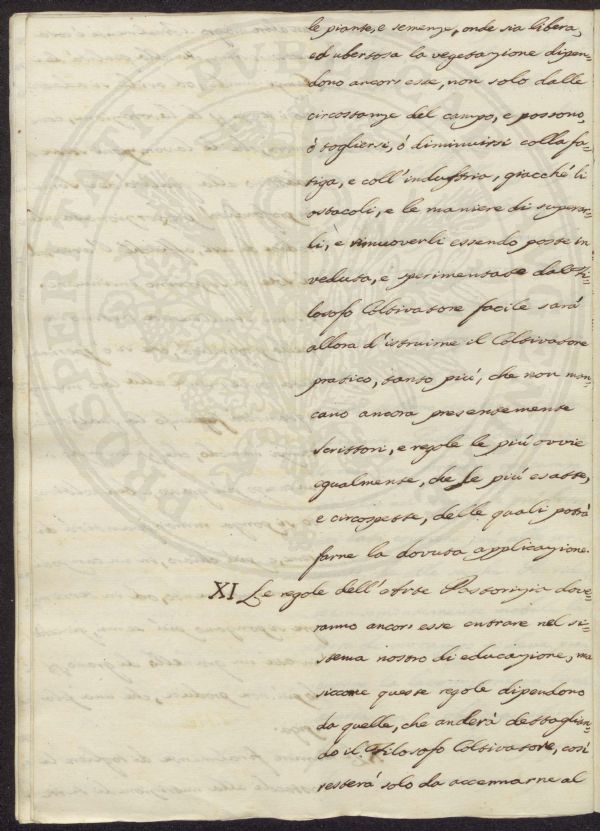 le piante, e semenze, onde sia libera,
ed ubertosa la vegetazione dipen-
dono ancor esse, non solo dalle
circostanze del campo, e possono,
ò togliersi, ò diminuirsi colla fa-
tiga, e coll'industria, giacché li
ostacoli, e le maniere di superar-
li, e rimuoverli essendo poste in
veduta, e sperimentate dal Fi-
losofo Coltivatore facile sarà
allora d'istruirne il Coltivatore
pratico, tanto più, che non man-
cano ancora presentemente
scrittori, e regole le più ovvie
egualmente, che le più esatte,
e circospette, delle quali potrà
farne la dovuta applicazione.
XI Le regole dell'Arte Pastorizia dove-
ranno ancor esse entrare nel si-
stema nostro di educazione, ma
siccome queste regole dipendono
da quelle, che anderà dettaglian-
do il Filosofo Coltivatore, così
resterà solo da accennarne al
PROSPERITATI PUBLICAE